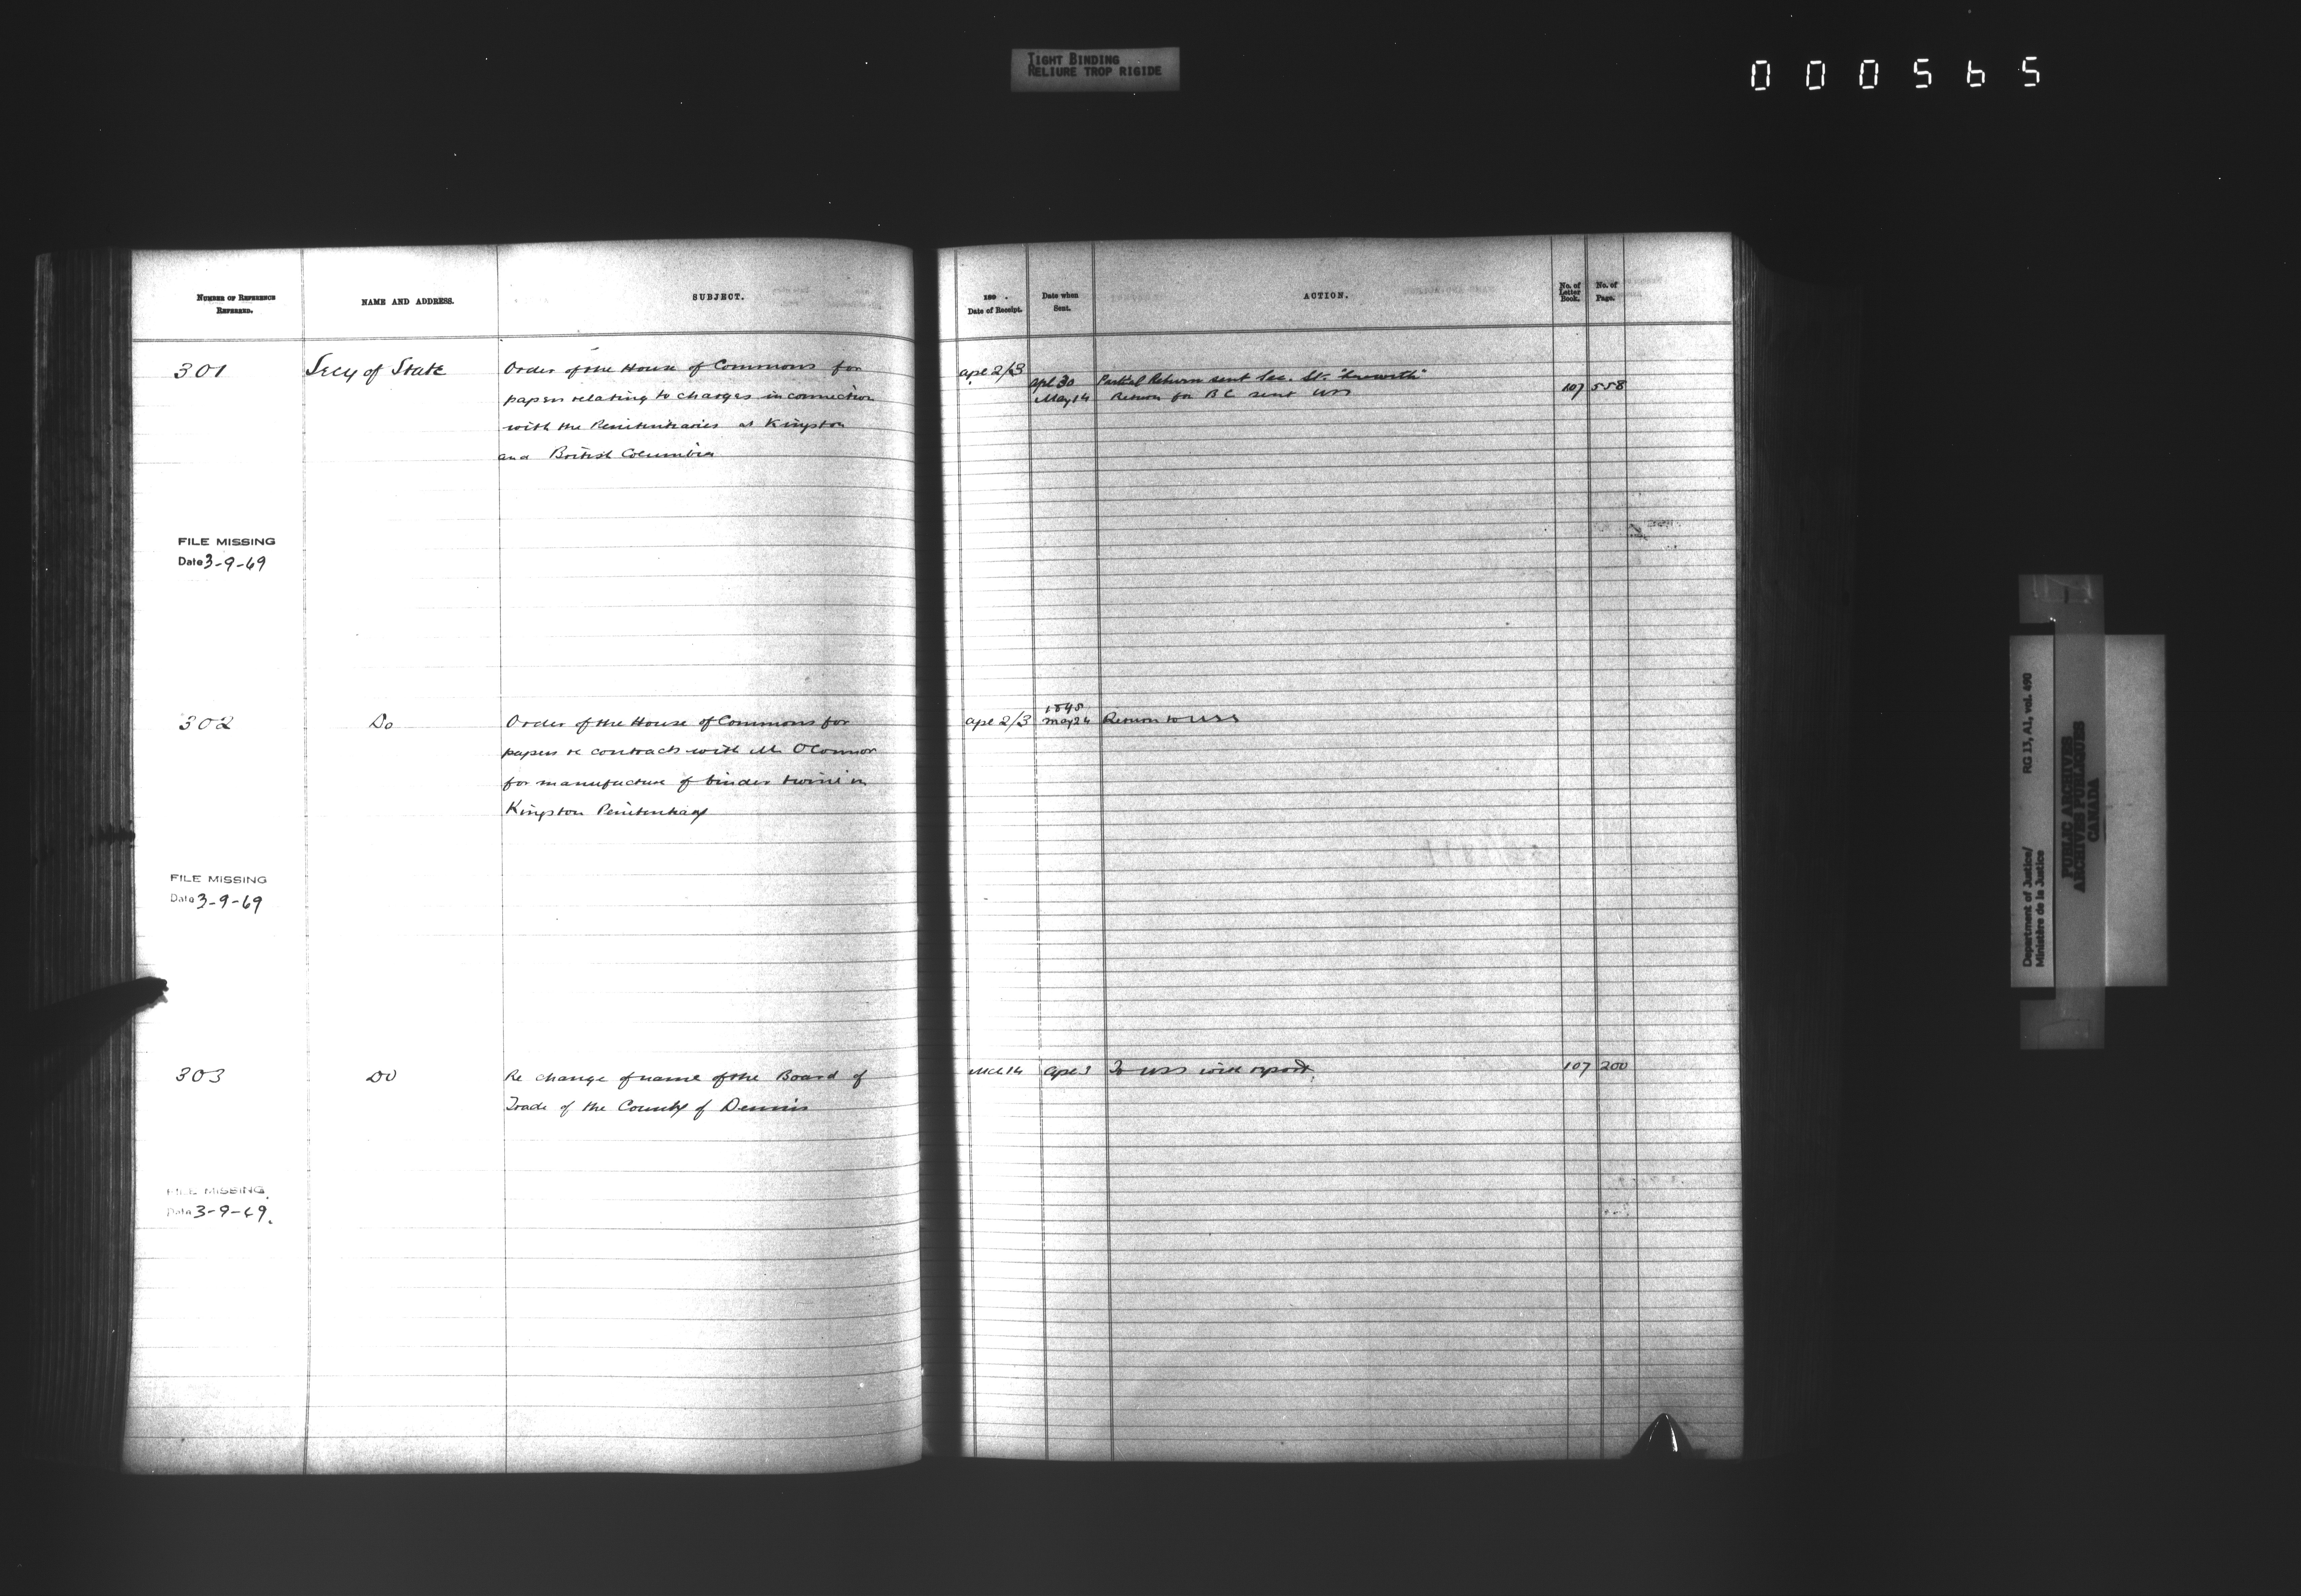 TIGHT BINDING
RELIURE TROP RIGIDE
000565
NUMBER OF REFERENCE
REFERRED.
NAME AND ADDRESS.
SUBJECT.
301
Secy of State
Order of the House of Commons for
papers relating to charges in connection
with the Penitentiaries at Kingston
and British Columbia
FILE MISSING
Date 3-9-69
302
Do
Order of the House of Commons for
papers re contracts with Mr O'Connor
for manufacture of binder twine in
Kingston Penitentiary
FILE MISSING
Date 3-9-69
303
Do
Re change of name of the Board of
Trade of the County of Dennis
FILE MISSING
Date 3-9-69
189 .
Date of Receipt.
Date when
Sent.
ACTION.
No. of
Letter
Book.
No. of
Page.
apl 2/3
apl 30 Partial Return sent Sec. St.
May 14 Return for B C sent USS 107 558
apl 2/3 May 24 Return to USS
Mch 14 apl 3 To USS with report. 107 200
Department of Justice/
Ministère de la Justice
RG 13, A1, vol. 490
PUBLIC ARCHIVES
ARCHIVES PUBLIQUES
CANADA